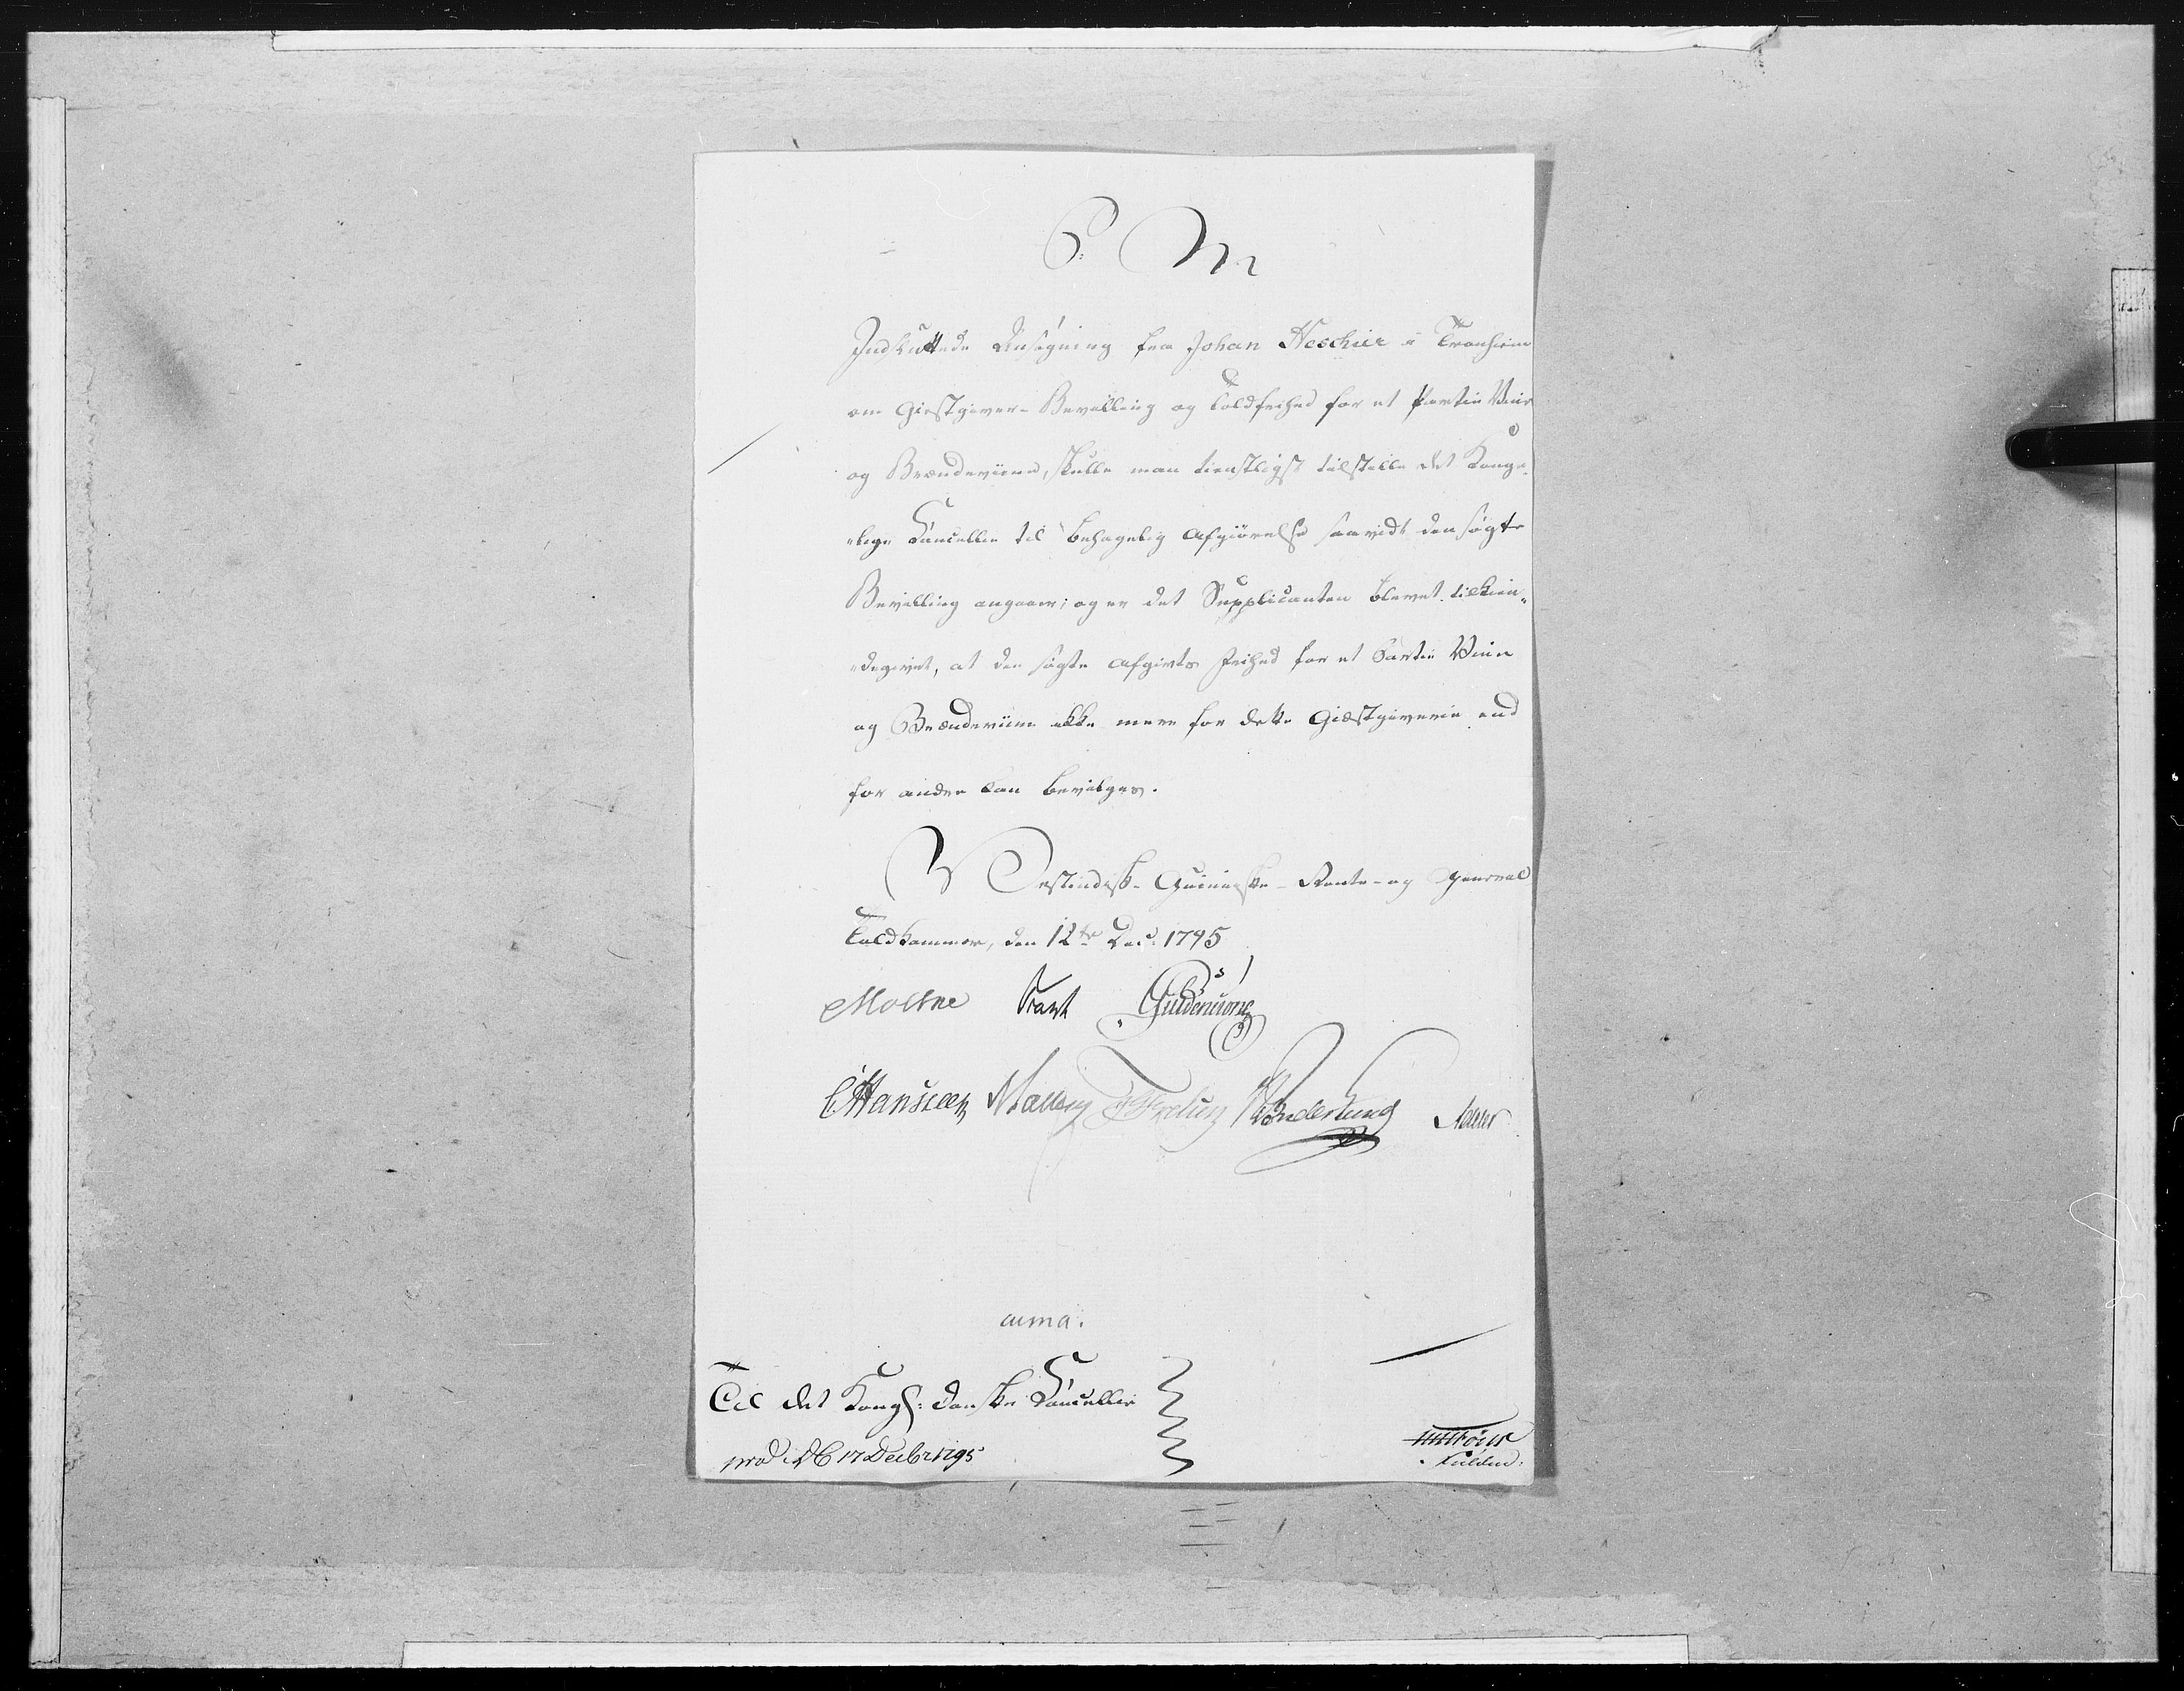 P. M
Indsluttede Ansøgning fra Johan Heschier i Tronhiem
om Giestgiver-Bevilling og Toldfrihed for et Partie Viin
og Brændeviine, skulle man tienstligst tilstille det Konge-
-lige Cancellie til behagelig Afgiørelse saavidt den søgte
Bevilling angaaer; og er det Supplicanten blevet tilkien-
-degivet, at den søgte Afgivts Frihed for et Partie Viin
og Brændeviin ikke mere for dette Giæstgiverie end
for andre kan bevilges.
Vestindisk-Guineiske-Rente- og General
Toldkammer, den 12te Dec: 1795
Moltke Gyldencrone
CHansen
Til det Kongl: danske Cancellie
prod: i DC 17 Decbr 1795